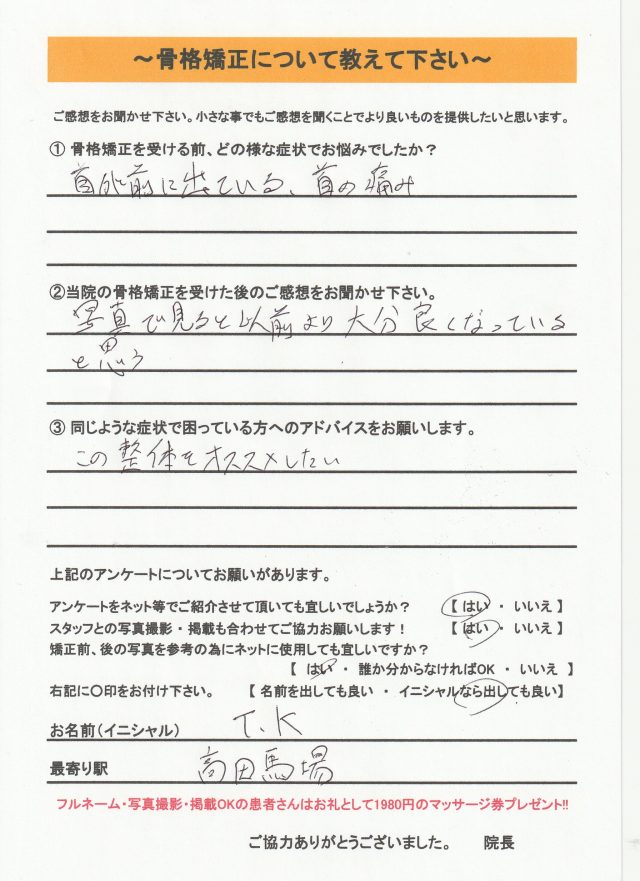 ～骨格矯正について教えて下さい～
ご感想をお聞かせ下さい。小さな事でもご感想を聞くことでより良いものを提供したいと思います。
① 骨格矯正を受ける前、どの様な症状でお悩みでしたか？
首が前に出ている、首の痛み
②当院の骨格矯正を受けた後のご感想をお聞かせ下さい。
写真で見ると以前より大分良くなっている
と思う
③ 同じような症状で困っている方へのアドバイスをお願いします。
この整体をオススメしたい
上記のアンケートについてお願いがあります。
アンケートをネット等でご紹介させて頂いても宜しいでしょうか？ 【 はい ・ いいえ 】
スタッフとの写真撮影・掲載も合わせてご協力お願いします！ 【 はい ・ いいえ 】
矯正前、後の写真を参考の為にネットに使用しても宜しいですか？
【 はい ・ 誰か分からなければOK ・ いいえ 】
右記に〇印をお付け下さい。 【 名前を出しても良い ・ イニシャルなら出しても良い】
お名前（イニシャル） T.K
最寄り駅 高田馬場
フルネーム・写真撮影・掲載OKの患者さんはお礼として1980円のマッサージ券プレゼント!!
ご協力ありがとうございました。 院長